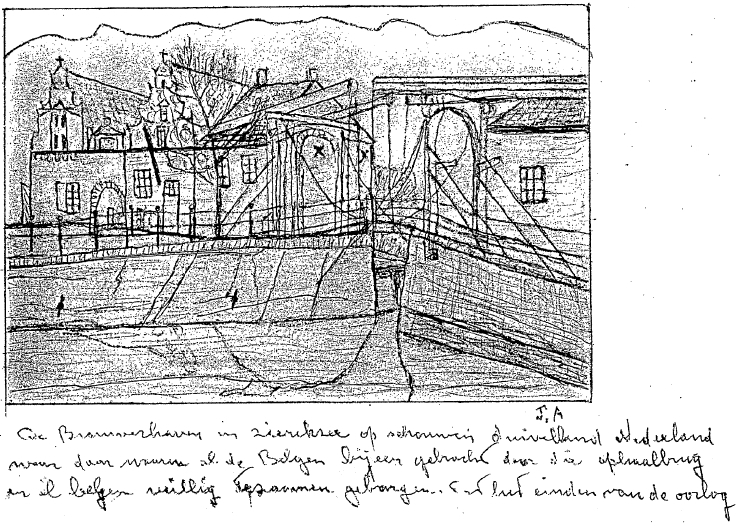 J. A
De Brouwerhaven in zierikzee op schouwen duivelland Nederland
waar daar waren al de Belgen bijeen gebracht door die ophaalbrug
en al belgen veillig tezaamen geborgen.. tot het einden van de oorlog